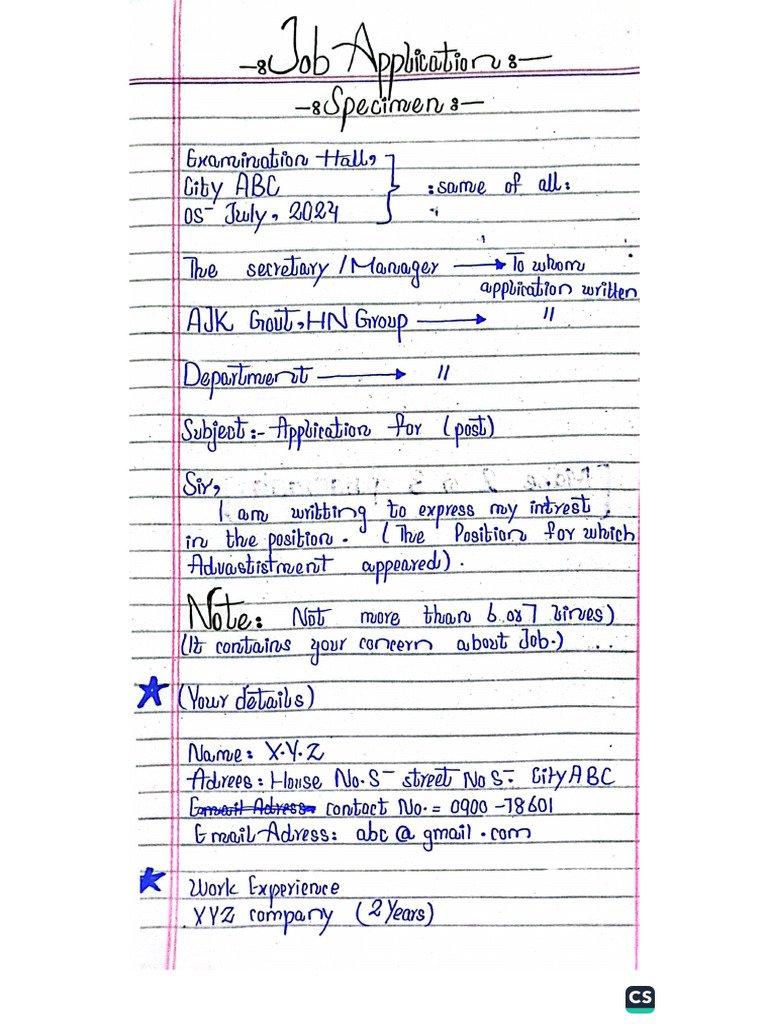 -8 Job Application 8-
-8 Specimen 8-
Examination Hall,
City ABC :same of all:
05- July, 2024
The secretary / Manager → To whom
application written
AJK Govt, HN Group → "
Department → "
Subject:- Application for (post)
Sir,
I am writting to express my intrest
in the position. (The Position for which
Advastistment appeared).
Note: Not more than 6 or 7 lines)
(It contains your concern about Job.)
★ (Your details)
Name: X.Y.Z
Adrees: House No. 5- street No 5-. City ABC
contact No. = 0900-78601
Email Adress: abc@gmail.com
★ Work Experience
XYZ company (2 Years)
CS